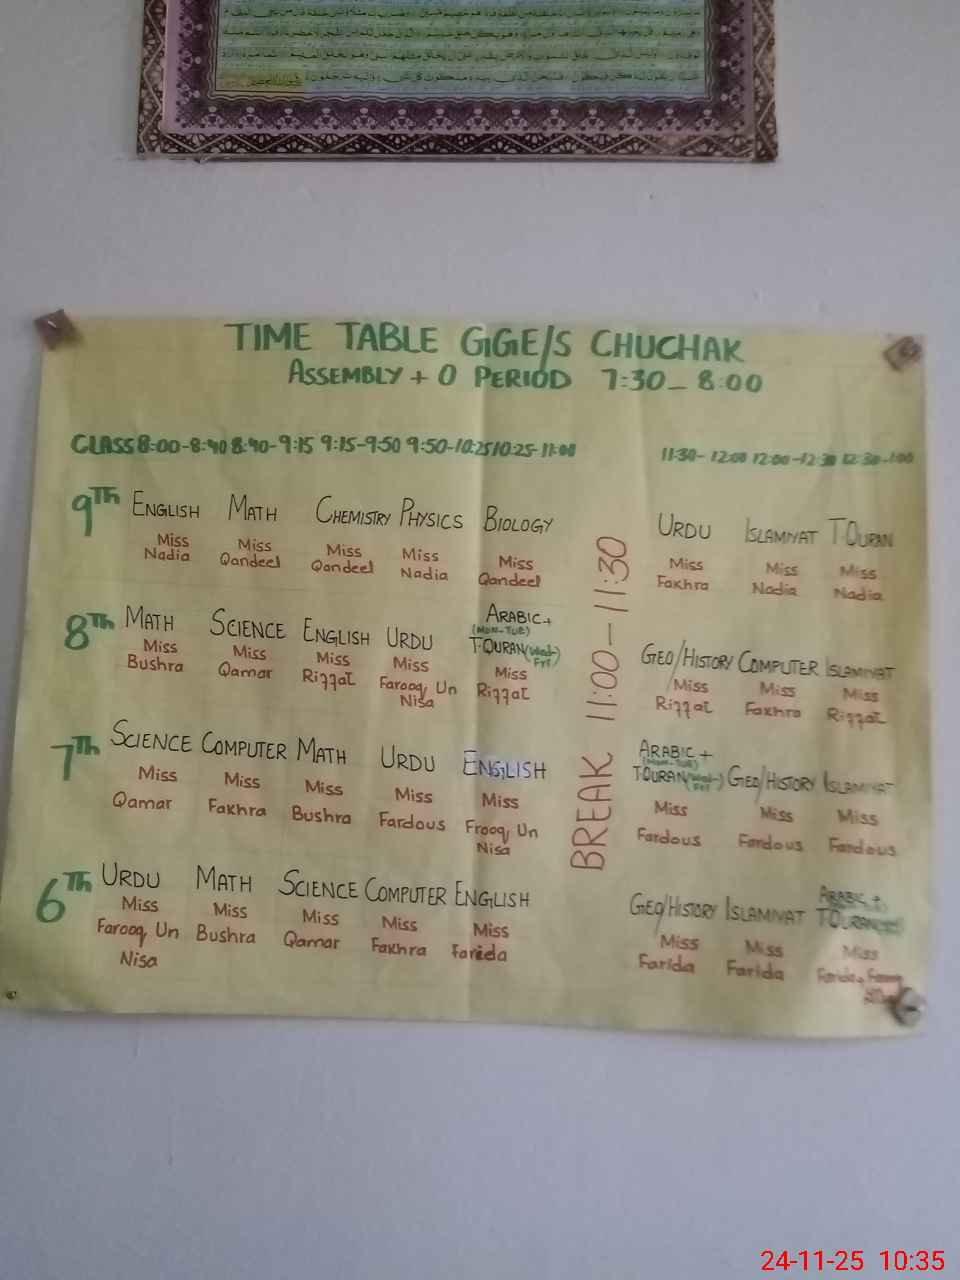 TIME TABLE GGE/S CHUCHAK
ASSEMBLY + 0 PERIOD 7:30 - 8:00
CLASS 8:00-8:40 8:40-9:15 9:15-9:50 9:50-10:25 10:25-11:00 11:30-12:00 12:00-12:30 12:30-1:00
9TH ENGLISH MATH CHEMISTRY PHYSICS BIOLOGY URDU ISLAMIYAT T.QURAN
Miss Nadia Miss Qandeel Miss Qandeel Miss Nadia Miss Qandeel Miss Fakhra Miss Nadia Miss Nadia
8TH MATH SCIENCE ENGLISH URDU ARABIC+ (MON-TUE) T.QURAN (Wed-Fri) GEO/HISTORY COMPUTER ISLAMIYAT
Miss Bushra Miss Qamar Miss Rizzat Miss Farooq Un Nisa Miss Rizzat Miss Rizzat Miss Fakhra Miss Rizzat
BREAK 11:00-11:30
7TH SCIENCE COMPUTER MATH URDU ENGLISH ARABIC+ (MON-TUE) T.QURAN (Wed-Fri) GEO/HISTORY ISLAMIYAT
Miss Qamar Miss Fakhra Miss Bushra Miss Fardous Miss Frooq Un Nisa Miss Fardous Miss Fardous Miss Fardous
6TH URDU MATH SCIENCE COMPUTER ENGLISH GEO/HISTORY ISLAMIYAT ARABIC + T.QURAN
Miss Farooq Un Nisa Miss Bushra Miss Qamar Miss Fakhra Miss Farida Miss Farida Miss Farida Miss Farida
24-11-25 10:35